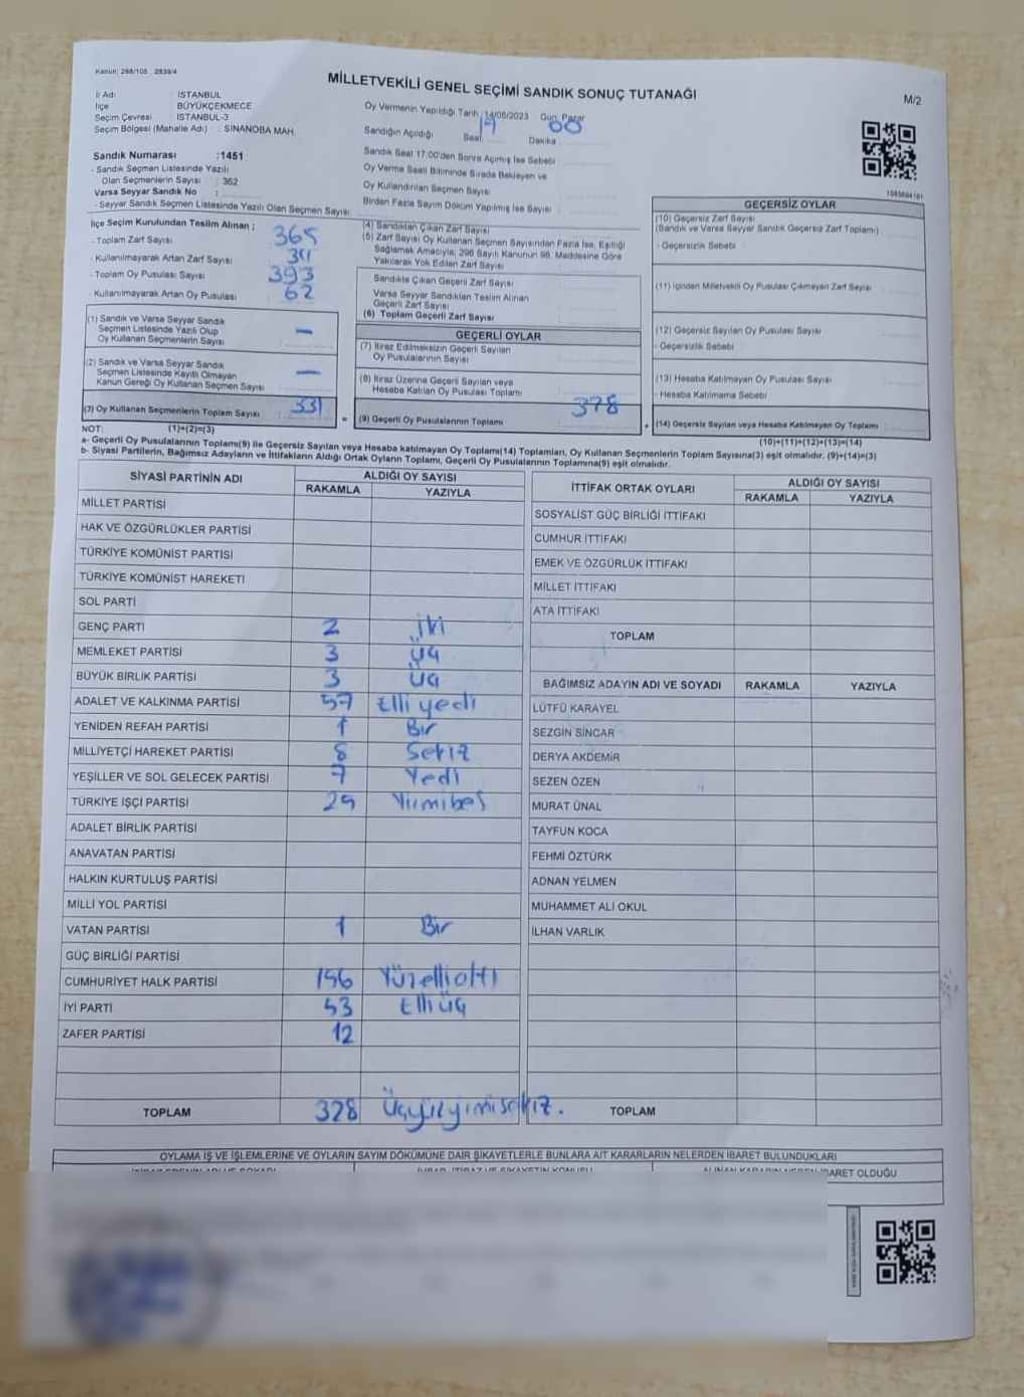 Kanun: 298/105 2839/4
MİLLETVEKİLİ GENEL SEÇİMİ SANDIK SONUÇ TUTANAĞI
M/2
İl Adı : İSTANBUL
İlçe BÜYÜKÇEKMECE
Seçim Çevresi : İSTANBUL-3
Seçim Bölgesi (Mahalle Adı) : SİNANOBA MAH.
Oy Vermenin Yapıldığı Tarih 14/05/2023 Gün Pazar
Sandığın Açıldığı Saat 17 Dakika 00
Sandık Numarası :1451
- Sandık Seçmen Listesinde Yazılı
Olan Seçmenlerin Sayısı : 362
Varsa Seyyar Sandık No :
- Seyyar Sandık Seçmen Listesinde Yazılı Olan Seçmen Sayısı
Sandık Saat 17:00'den Sonra Açılmış İse Sebebi
Oy Verme Saati Bitiminde Sırada Bekleyen ve
Oy Kullandırılan Seçmen Sayısı
Birden Fazla Sayım Döküm Yapılmış İse Sayısı
İlçe Seçim Kurulundan Teslim Alınan ;
- Toplam Zarf Sayısı 365
- Kullanılmayarak Artan Zarf Sayısı
- Toplam Oy Pusulası Sayısı 393
- Kullanılmayarak Artan Oy Pusulası 62
(1) Sandık ve Varsa Seyyar Sandık
Seçmen Listesinde Yazılı Olup
Oy Kullanan Seçmenlerin Sayısı —
(2) Sandık ve Varsa Seyyar Sandık
Seçmen Listesinde Kayıtlı Olmayan
Kanun Gereği Oy Kullanan Seçmen Sayısı —
(3) Oy Kullanan Seçmenlerin Toplam Sayısı 331
(4) Sandıktan Çıkan Zarf Sayısı
(5) Zarf Sayısı Oy Kullanan Seçmen Sayısından Fazla İse, Eşitliği
Sağlamak Amacıyla, 298 Sayılı Kanunun 98. Maddesine Göre
Yakılarak Yok Edilen Zarf Sayısı
Sandıkta Çıkan Geçerli Zarf Sayısı
Varsa Seyyar Sandıktan Teslim Alınan
Geçerli Zarf Sayısı
(6) Toplam Geçerli Zarf Sayısı
GEÇERLİ OYLAR
(7) İtiraz Edilmeksizin Geçerli Sayılan
Oy Pusulalarının Sayısı
(8) İtiraz Üzerine Geçerli Sayılan veya
Hesaba Katılan Oy Pusulası Toplamı
= (9) Geçerli Oy Pusulalarının Toplamı 378
GEÇERSİZ OYLAR
(10) Geçersiz Zarf Sayısı
(Sandık ve Varsa Seyyar Sandık Geçersiz Zarf Toplamı)
- Geçersizlik Sebebi
(11) İçinden Milletvekili Oy Pusulası Çıkmayan Zarf Sayısı
(12) Geçersiz Sayılan Oy Pusulası Sayısı
- Geçersizlik Sebebi
(13) Hesaba Katılmayan Oy Pusulası Sayısı
- Hesaba Katılmama Sebebi
+ (14) Geçersiz Sayılan veya Hesaba Katılmayan Oy Toplamı
NOT: (1)+(2)=(3) (10)+(11)+(12)+(13)=(14)
a- Geçerli Oy Pusulalarının Toplamı(9) ile Geçersiz Sayılan veya Hesaba katılmayan Oy Toplamı(14) Toplamları, Oy Kullanan Seçmenlerin Toplam Sayısına(3) eşit olmalıdır. (9)+(14)=(3)
b- Siyasi Partilerin, Bağımsız Adayların ve İttifakların Aldığı Ortak Oyların Toplamı, Geçerli Oy Pusulalarının Toplamına(9) eşit olmalıdır.
SİYASİ PARTİNİN ADI ALDIĞI OY SAYISI
RAKAMLA YAZIYLA
MİLLET PARTİSİ
HAK VE ÖZGÜRLÜKLER PARTİSİ
TÜRKİYE KOMÜNİST PARTİSİ
TÜRKİYE KOMÜNİST HAREKETİ
SOL PARTİ
GENÇ PARTİ 2 İki
MEMLEKET PARTİSİ 3 Üç
BÜYÜK BİRLİK PARTİSİ 3 Üç
ADALET VE KALKINMA PARTİSİ 57 Elli yedi
YENİDEN REFAH PARTİSİ 1 Bir
MİLLİYETÇİ HAREKET PARTİSİ 8 Sekiz
YEŞİLLER VE SOL GELECEK PARTİSİ 7 Yedi
TÜRKİYE İŞÇİ PARTİSİ
ADALET BİRLİK PARTİSİ
ANAVATAN PARTİSİ
HALKIN KURTULUŞ PARTİSİ
MİLLİ YOL PARTİSİ
VATAN PARTİSİ 1 Bir
GÜÇ BİRLİĞİ PARTİSİ
CUMHURİYET HALK PARTİSİ 156 Yüzelliatı
İYİ PARTİ 53 Elli üç
ZAFER PARTİSİ 12
TOPLAM 328
İTTİFAK ORTAK OYLARI ALDIĞI OY SAYISI
RAKAMLA YAZIYLA
SOSYALİST GÜÇ BİRLİĞİ İTTİFAKI
CUMHUR İTTİFAKI
EMEK VE ÖZGÜRLÜK İTTİFAKI
MİLLET İTTİFAKI
ATA İTTİFAKI
TOPLAM
BAĞIMSIZ ADAYIN ADI VE SOYADI RAKAMLA YAZIYLA
LÜTFÜ KARAYEL
SEZGİN SİNCAR
DERYA AKDEMİR
SEZEN ÖZEN
MURAT ÜNAL
TAYFUN KOCA
FEHMİ ÖZTÜRK
ADNAN YELMEN
MUHAMMET ALİ OKUL
İLHAN VARLIK
TOPLAM
OYLAMA İŞ VE İŞLEMLERİNE VE OYLARIN SAYIM DÖKÜMÜNE DAİR ŞİKAYETLERLE BUNLARA AİT KARARLARIN NELERDEN İBARET BULUNDUKLARI
İBARET OLDUĞU